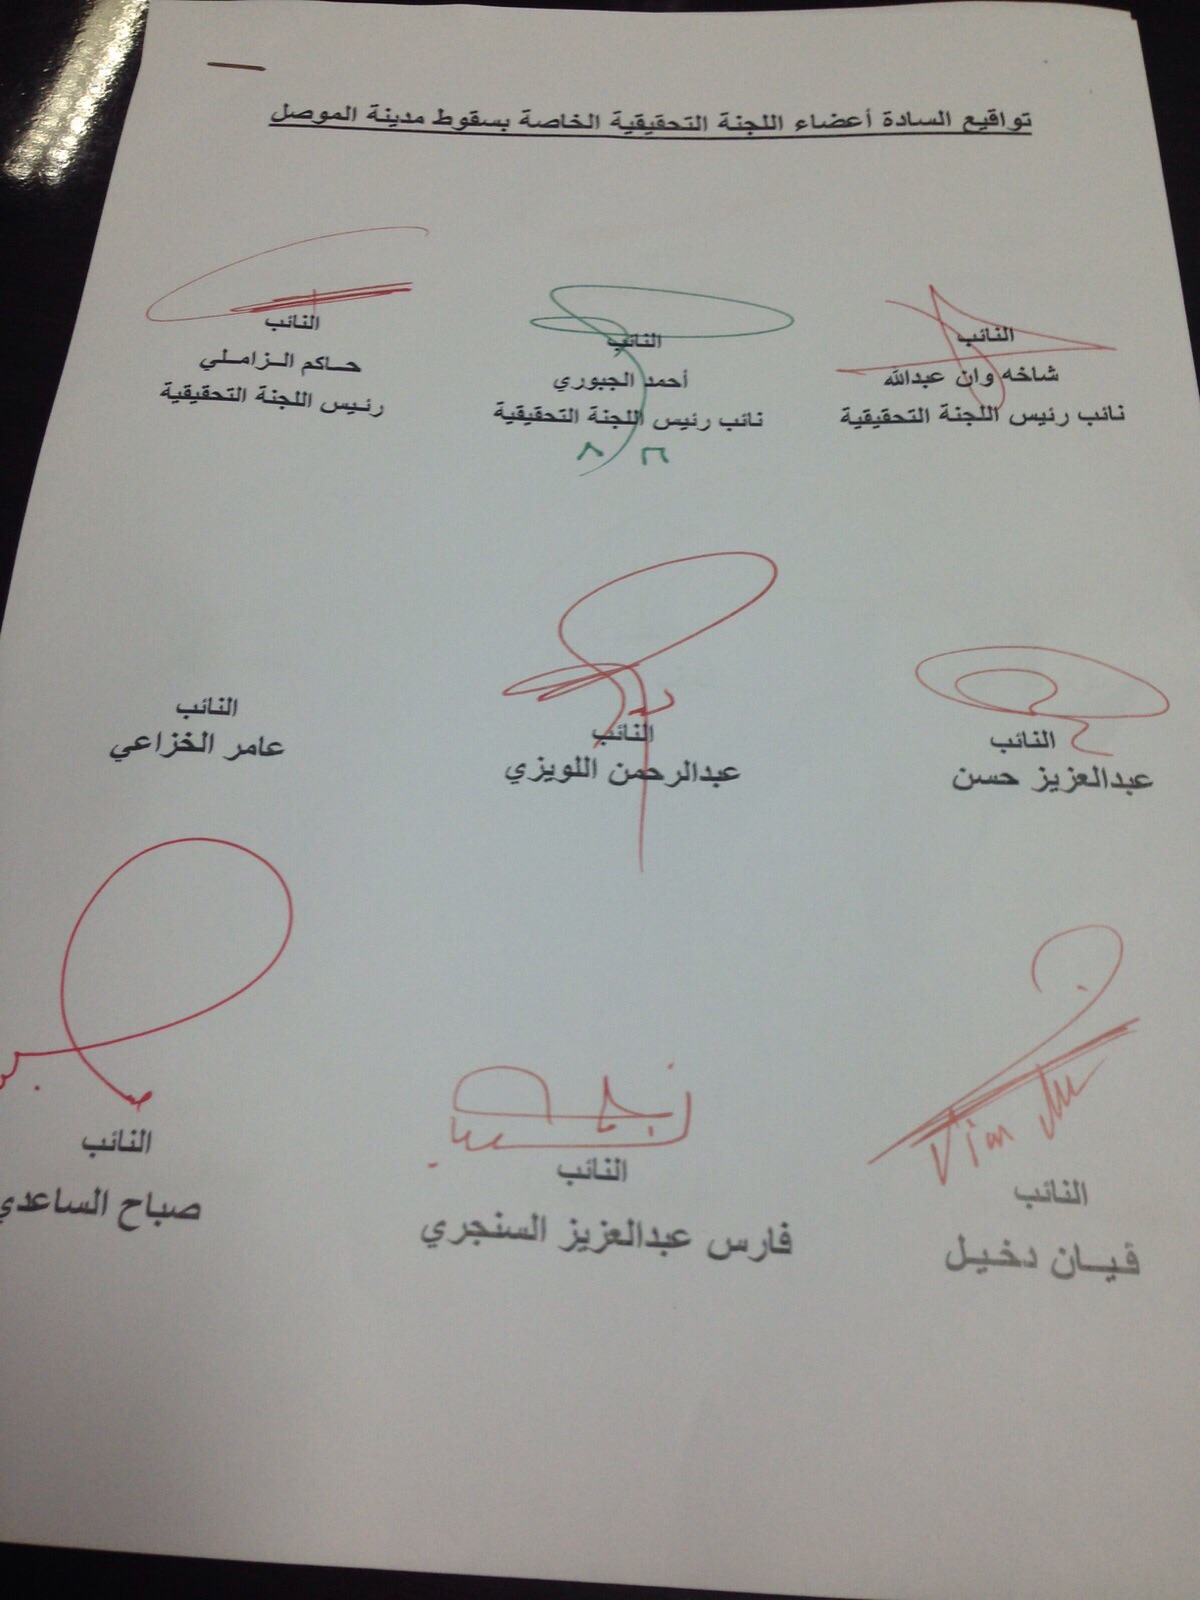 تواقيع السادة أعضاء اللجنة التحقيقية الخاصة بسقوط مدينة الموصل
النائب
شاخه وان عبدالله
نائب رئيس اللجنة التحقيقية
النائب
أحمد الجبوري
نائب رئيس اللجنة التحقيقية
النائب
حاكم الزاملي
رئيس اللجنة التحقيقية
النائب
عبدالعزيز حسن
النائب
عبدالرحمن اللويزي
النائب
عامر الخزاعي
النائب
ڤيان دخيل
النائب
فارس عبدالعزيز السنجري
النائب
صباح الساعدي